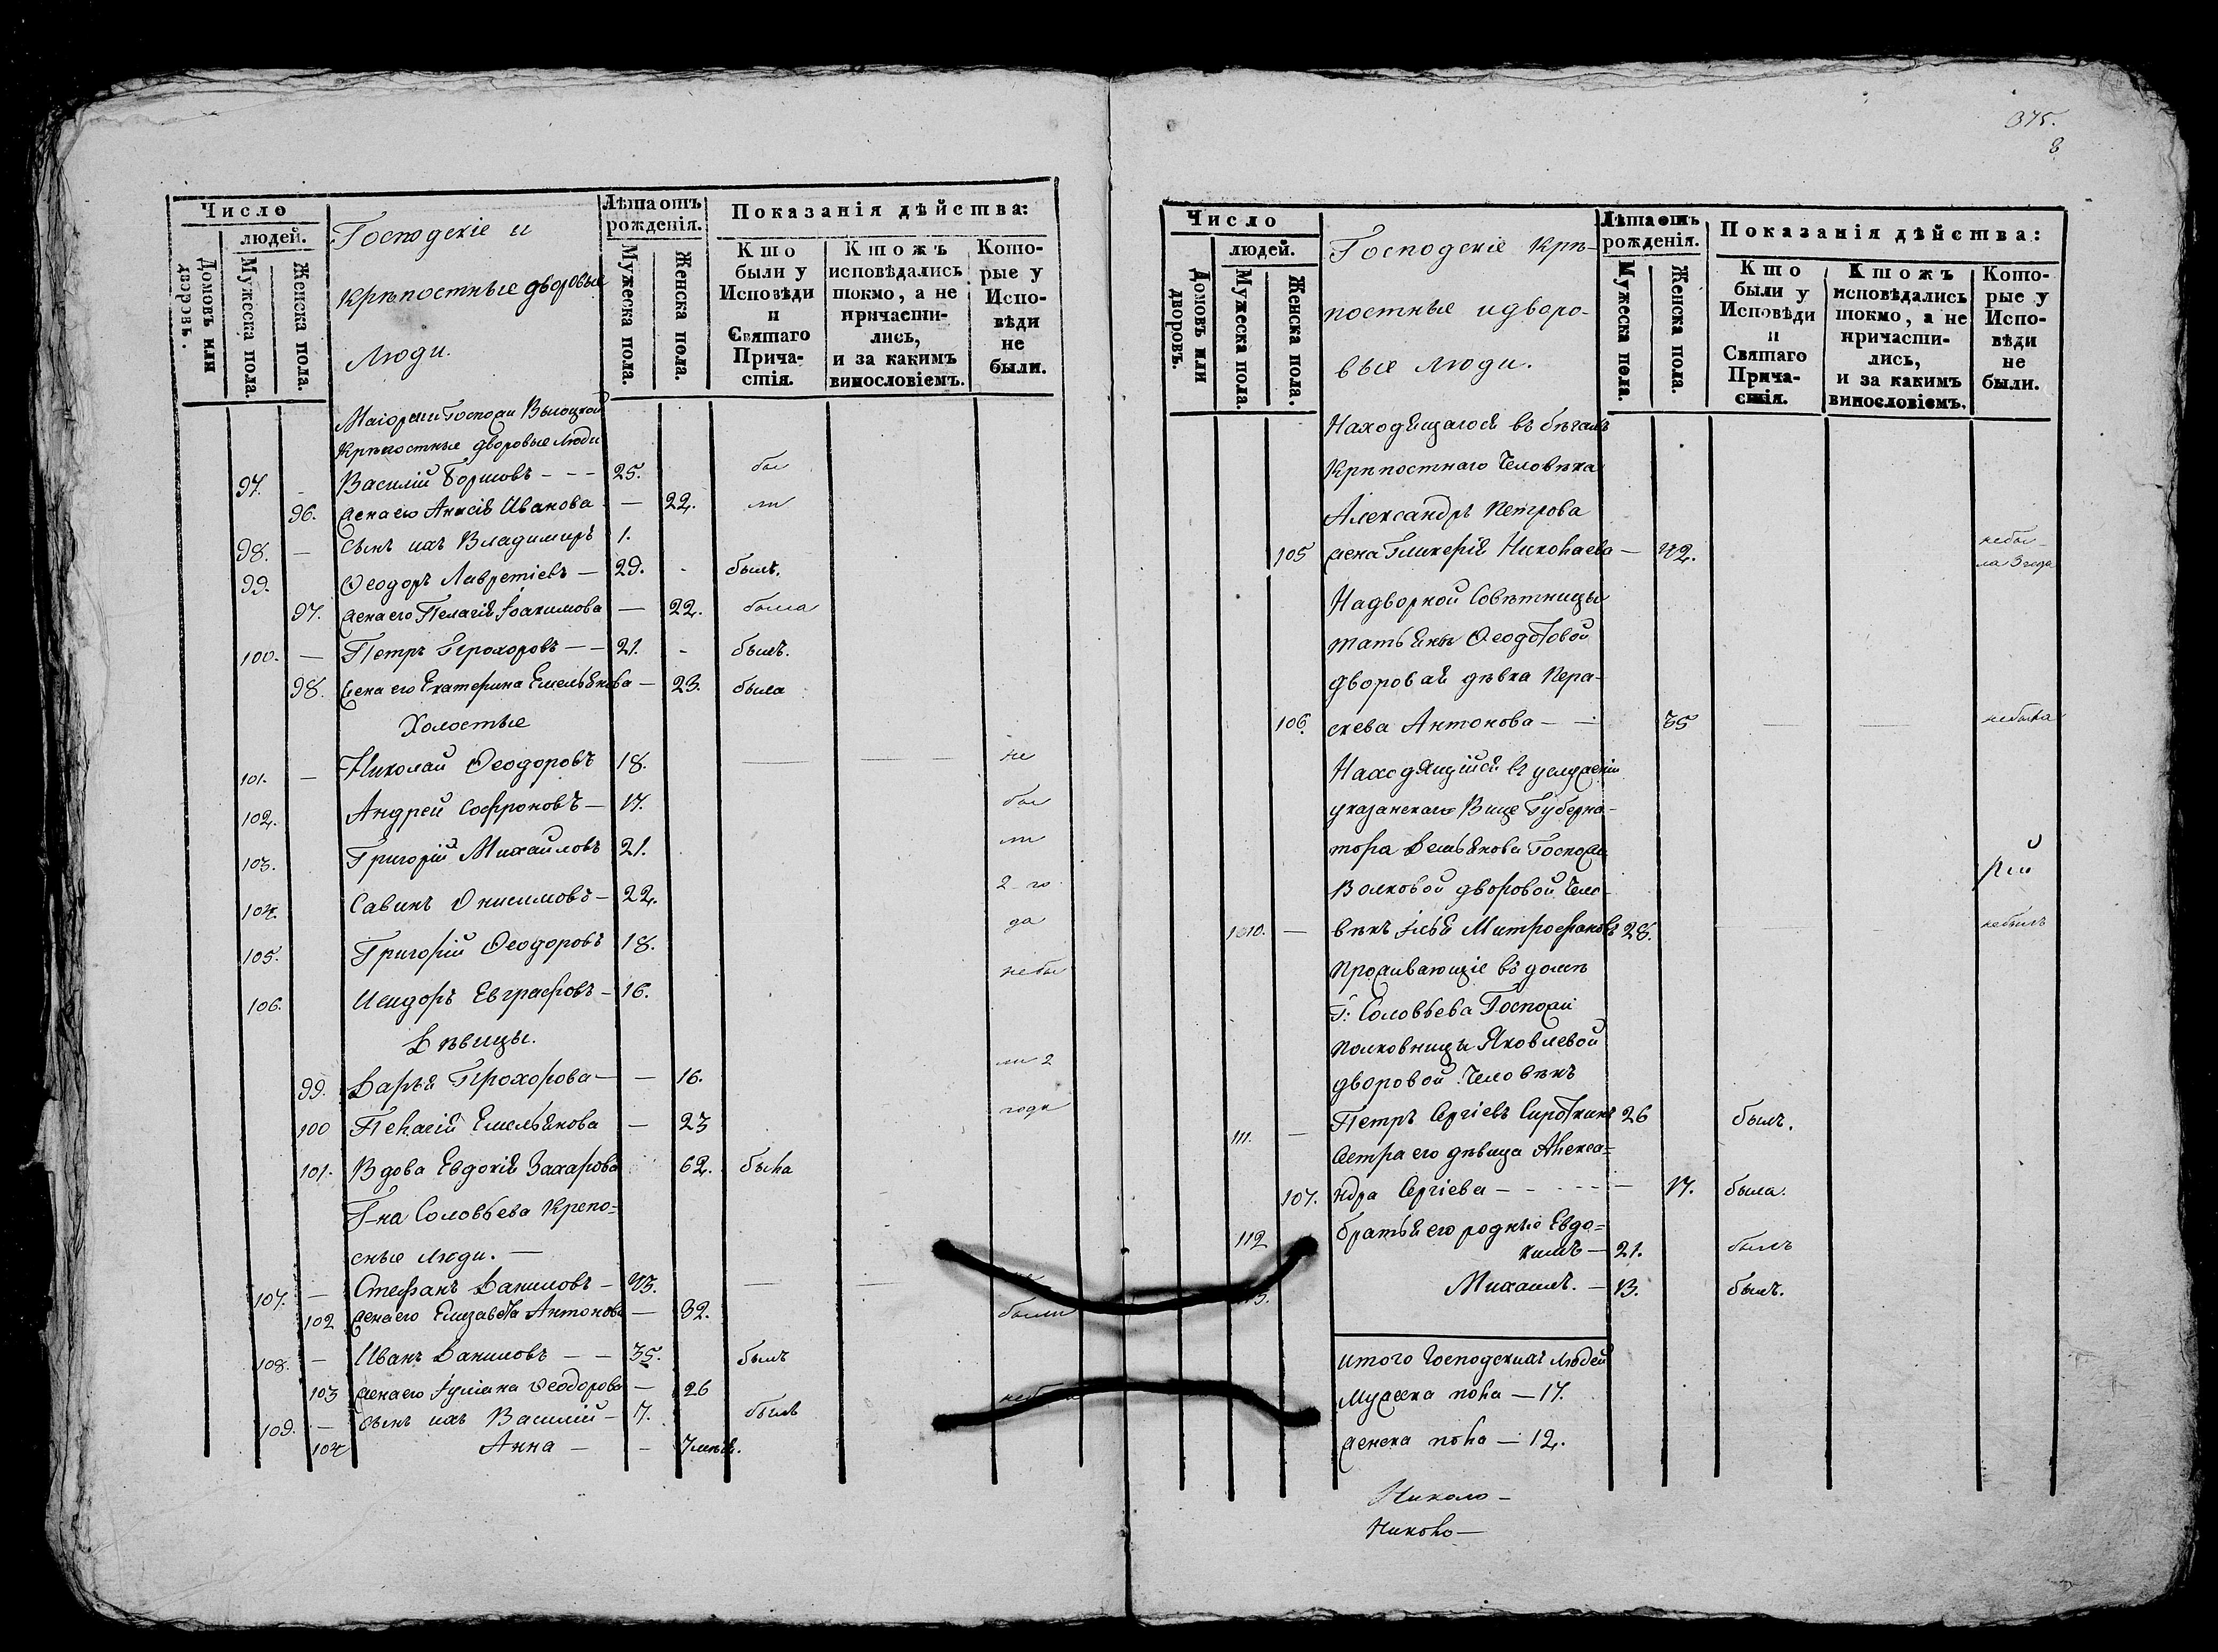 Число
людей.
Домовъ или дворовъ.
Мужеска пола.
Женска пола.
Господскіе и
крѣпостные дворовые
люди.
Лѣта отъ рожденія.
Мужеска пола.
Женска пола.
Показанія дѣйства:
Кто были у Исповѣди и Святаго Причастія.
Ктожъ исповѣдались токмо, а не причастились, и за какимъ винословіемъ.
Которые у Исповѣди не были.
Маіорши Госпожи
Крѣпостные дворовые люди
97. Василій Борисовъ - - - 25. бы
96. жена его Анисія Иванова — 22. ли
98. — сынъ ихъ Владимиръ 1.
99. Ѳеодоръ Лаврентіевъ — 29. - былъ.
97. жена его Пелагія Іоакимова — 22. была
100. — Петръ Прохоровъ — — 21. - былъ.
98. жена его Екатерина Емельянова — 23. была
Холостые
101. — Николай Ѳеодоровъ 18. — — — не
102. Андрей Софроновъ — 17. бы
103. Григорій Михайловъ 21. ли
104. Савинъ Онисимовъ — 22. 2 го
105. Григорій Ѳеодоровъ 18. да
106. Исидоръ Евграфовъ — 16. небы
Дѣвицы.
99. Дарья Прохорова — — 16. ли 2
100 Пелагія Емельянова — 23 года
101. Вдова Евдокія Захарова 62. была
Г-на Соловьева крепо=
сные люди. —
107. — Стефанъ Даниловъ — 43. — — не
102 жена его Елизавета Антонова — 32. были
108. — Иванъ Даниловъ — — 35. былъ
103 жена его Іуліана Ѳеодорова — 26
109. — сынъ ихъ Василій — 7. былъ
104 Анна — — 7 мѣся.
375.
8
Число
людей.
Домовъ или дворовъ.
Мужеска пола.
Женска пола.
Господскіе крѣ-
постные и дворо-
вые люди.
Лѣта отъ рожденія.
Мужеска пола.
Женска пола.
Показанія дѣйства:
Кто были у Исповѣди и Святаго Причастія.
Ктожъ исповѣдались токмо, а не причастились, и за какимъ винословіемъ.
Которые у Исповѣди не были.
Находящагося въ бѣгахъ
Крѣпостнаго человѣка
Александръ Петрова
105 жена Гликерія Николаева — 42. небы-
ла 3 года
Надворной Совѣтницы
Татьяны Ѳеодотовой
дворовая дѣвка Пара-
106. скева Антонова — — 35 — — небыла
Находящійся въ услуженіи
у казанскаго Вице Губерна-
тора Госпожи
Волковой дворовой чело-
110. — вѣкъ Илья Митрофановъ 28. небылъ
Проживающіе въ домѣ
Г: Соловьева Госпожи
полковницы Яковлевой
дворовой человѣкъ
111. — Петръ Сергіевъ Сироткинъ 26 былъ.
Сестра его дѣвица Алекса=
107. ндра Сергіева — - - - - — 17. была.
112 братья его родные Евдо=
кимъ — 21. былъ
Михаилъ. — 13. былъ.
Итого Господскихъ людей
Мужеска пола — 17.
женска пола — 12.
Николо —
Николо —